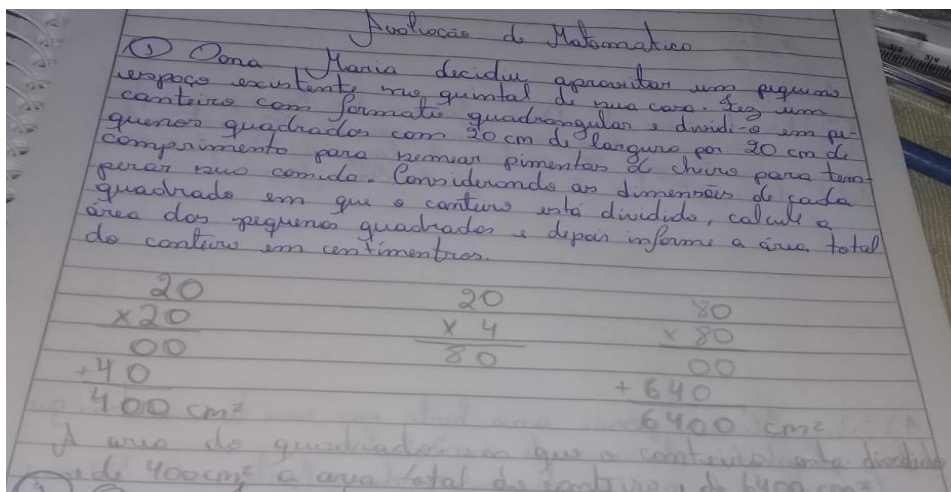 Avaliação de Matematica
① Dona Maria decidiu aproveitar um pequeno
espaço existente no quintal de sua casa. Fez um
canteiro com formato quadrangular e dividi-o em pe-
quenos quadrados com 20 cm de largura por 20 cm de
comprimento para semear pimentas de cheiro para tem-
perar sua comida. Considerando as dimensões de cada
quadrado em que o canteiro está dividido, calcule a
área dos pequenos quadrados e depois informe a área total
do canteiro em centimentros.
20 20 80
x20 x 4 x 80
00 80 00
+40 + 640
400 cm² 6400 cm²
A area do quadrados em que o canteiro esta dividido
e de 400cm² a area total do canteiro e de 6400 cm²